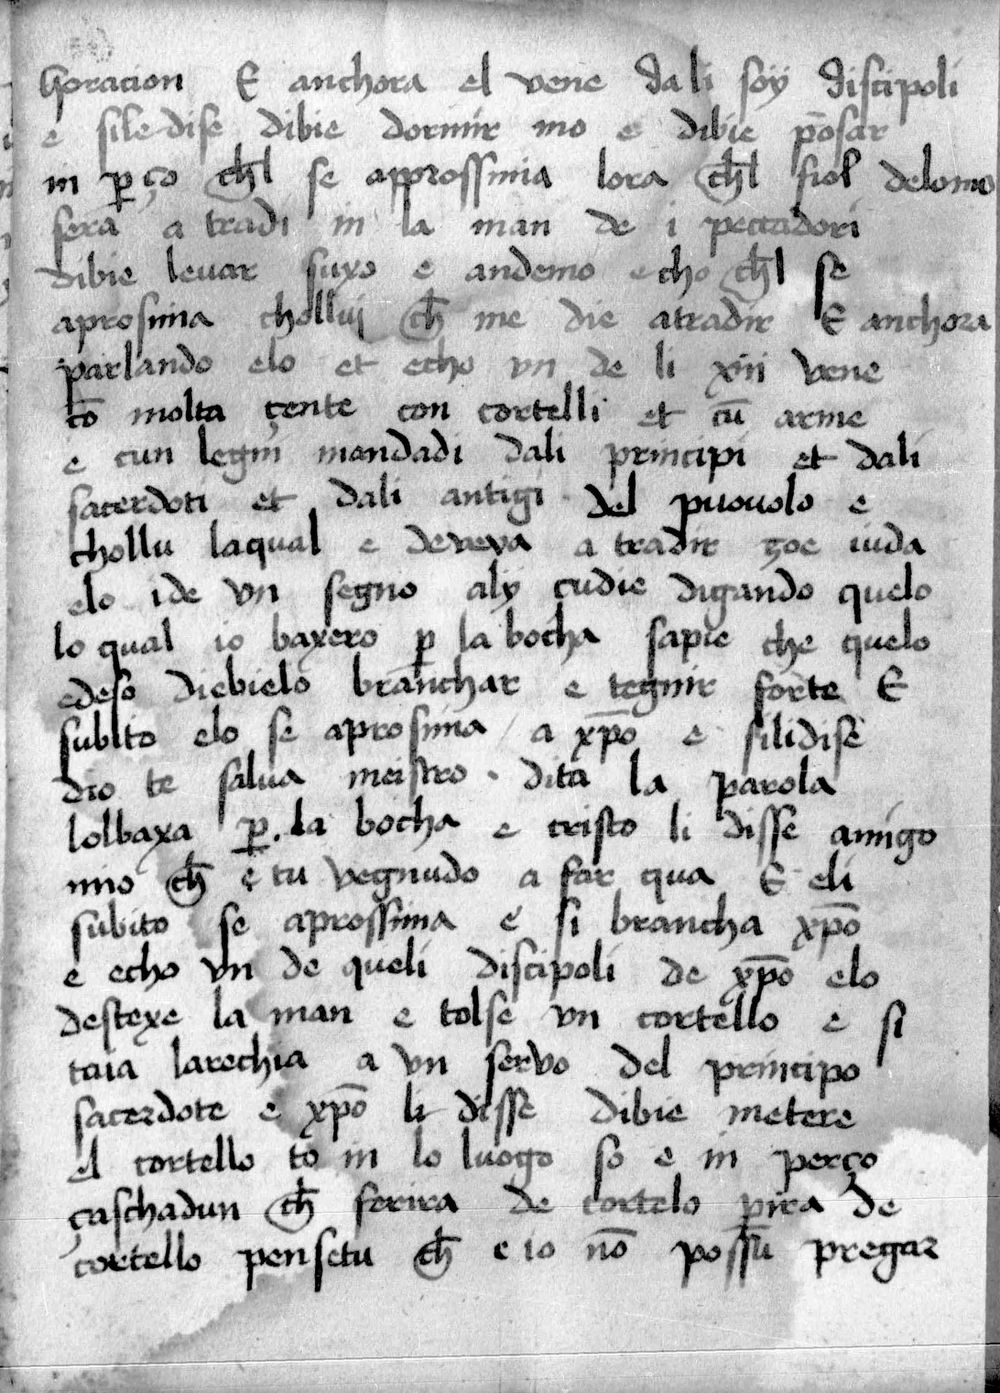 horacion E anchora el vene dali soÿ discipoli
e sile dise dibie dormir mo e dibie p̄osar
in p̱ço ch̄l se approssima lora ch̄l fiol delomo
sera a tradi in la man de i peccadori
dibie levar suxo e andemo echo ch̄l se
aprosima chollui ch̄ me die atradir E anchora
parlando elo et echo vn de li xiii vene
cō molta çente con cortelli et cū arme
e cun legni mandadi dali principi et dali
sacerdoti et dali antigi del puovolo e
chollu laqual e deveva a tradir zoe iuda
elo ide vn segno alÿ çudie digando quelo
lo qual io baxero p̱ la bocha sapie che quelo
edeso diebielo branchar e tegnir forte E
subito elo se aprosima / a xp̄o e silidise
dio te salva meistro · dita la parola
lolbaxa p̱ . la bocha e cristo li disse amigo
mio ch̄ e tu vegnudo a far qua E eli
subito se aprossima e si brancha xp̄o
e echo vn de queli discipoli de xp̄o elo
destexe la man e tolse vn cortello e si
taia larechia a vn servo del principo
sacerdote e xp̄o li disse dibie metere
el cortello to in lo luogo so e in perço
çaschadun ch̄ ferira de cortelo pira de
cortello pensetu ch̄ e io nō possū pregar